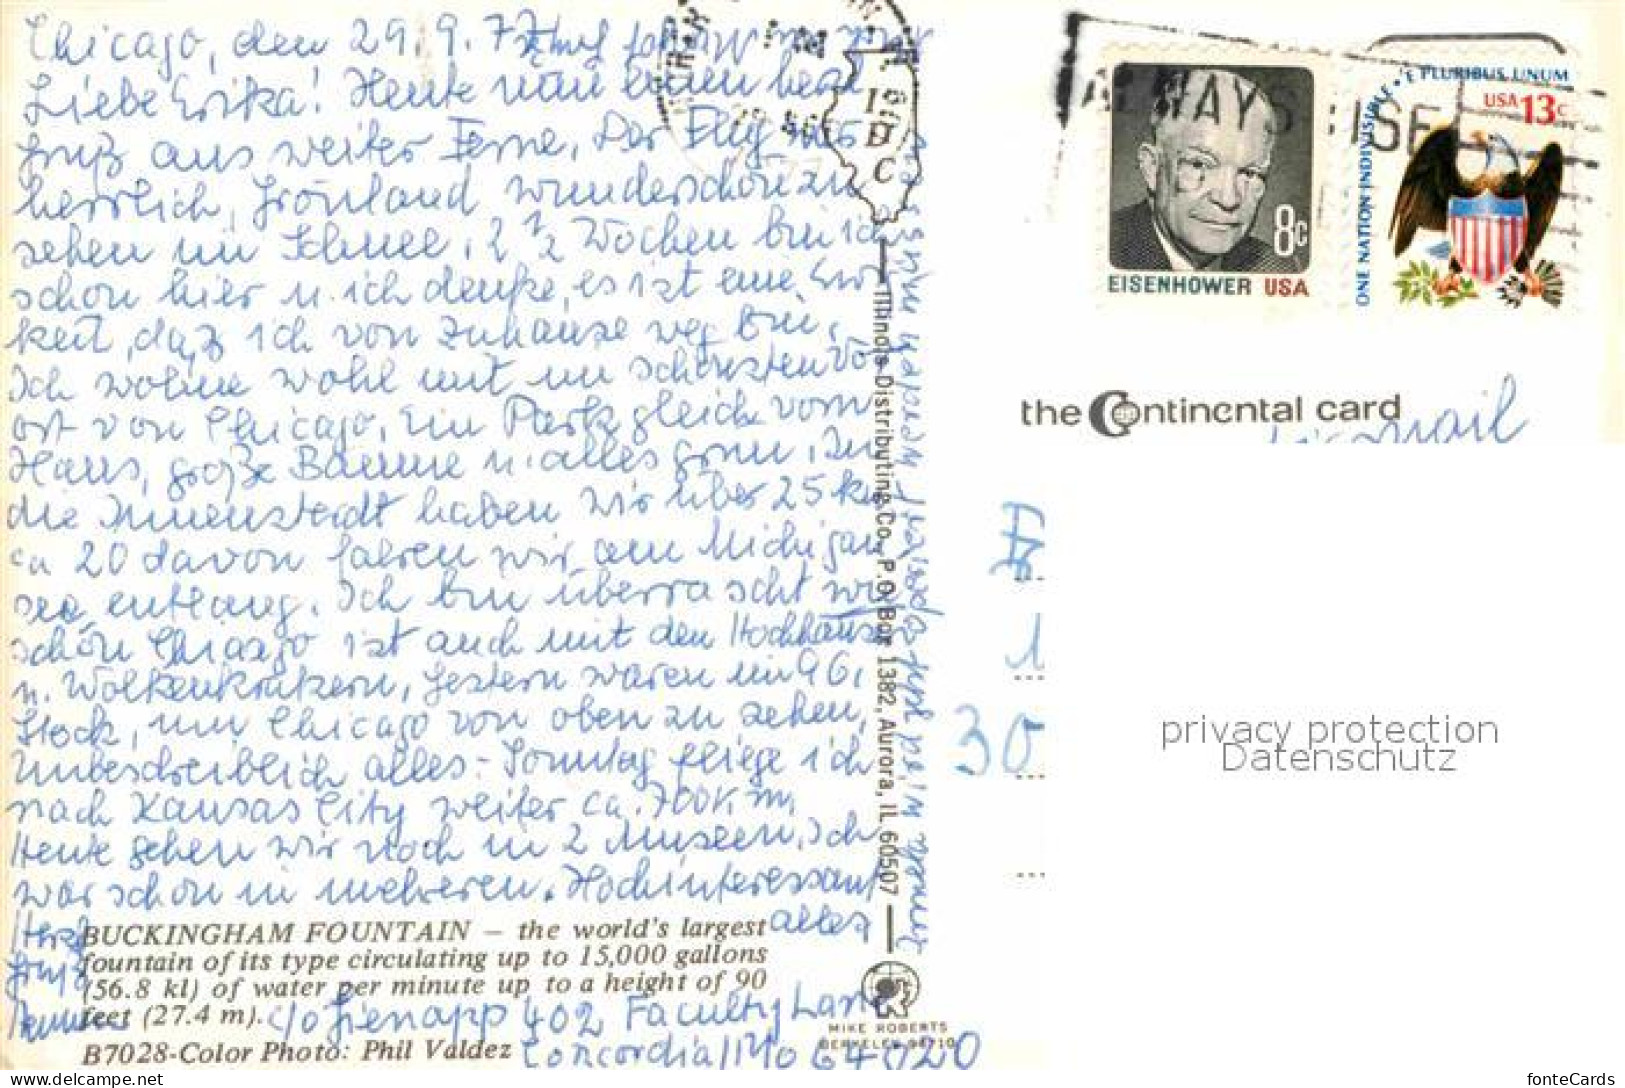 Chicago, den 29.9.77
Liebe Erika! Heute nun einen herzl
gruß aus weiter Ferne, Der Flug war
herrlich, Grönland wunderschön zu
sehen im Schnee, 2 1/2 Wochen bin ich
schon hier u. ich denke, es ist eine Ewig
keit, daß ich von zuhause weg bin,
Ich wohne wohl mit im schönsten Vor
ort von Chicago, Ein Park gleich vorm
Haus, große Bäume u. alles grün, In
die Innenstadt haben wir über 25 km
ca 20 davon fahren wir am Michigan
see entlang. Ich bin überrascht wie
schön Chicago ist auch mit den Hochhäuser
u. Wolkenkratzern, Gestern waren im 96,
Stock, um Chicago von oben zu sehen,
Unbeschreiblich alles - Sonntag fliege ich
nach Kansas City weiter ca. 700 km,
Heute gehen wir noch in 2 Museen, Ich
war schon in mehreren. Hochinteressant
alles
Herzl
Gruß
c/o Gienapp 402 Faculty Lane
Concordia / Mo 64020
BUCKINGHAM FOUNTAIN — the world's largest
fountain of its type circulating up to 15,000 gallons
(56.8 kl) of water per minute up to a height of 90
feet (27.4 m).
B7028-Color Photo: Phil Valdez
Illinois Distributing Co., P.O. Box 1382, Aurora, IL 60507
MIKE ROBERTS
BERKELEY 94710
ALWAYS USE
8c
EISENHOWER USA
E PLURIBUS UNUM
USA 13c
ONE NATION INDIVISIBLE
the Continental card
Airmail
1
30
privacy protection
Datenschutz
fonteCards
www.delcampe.net